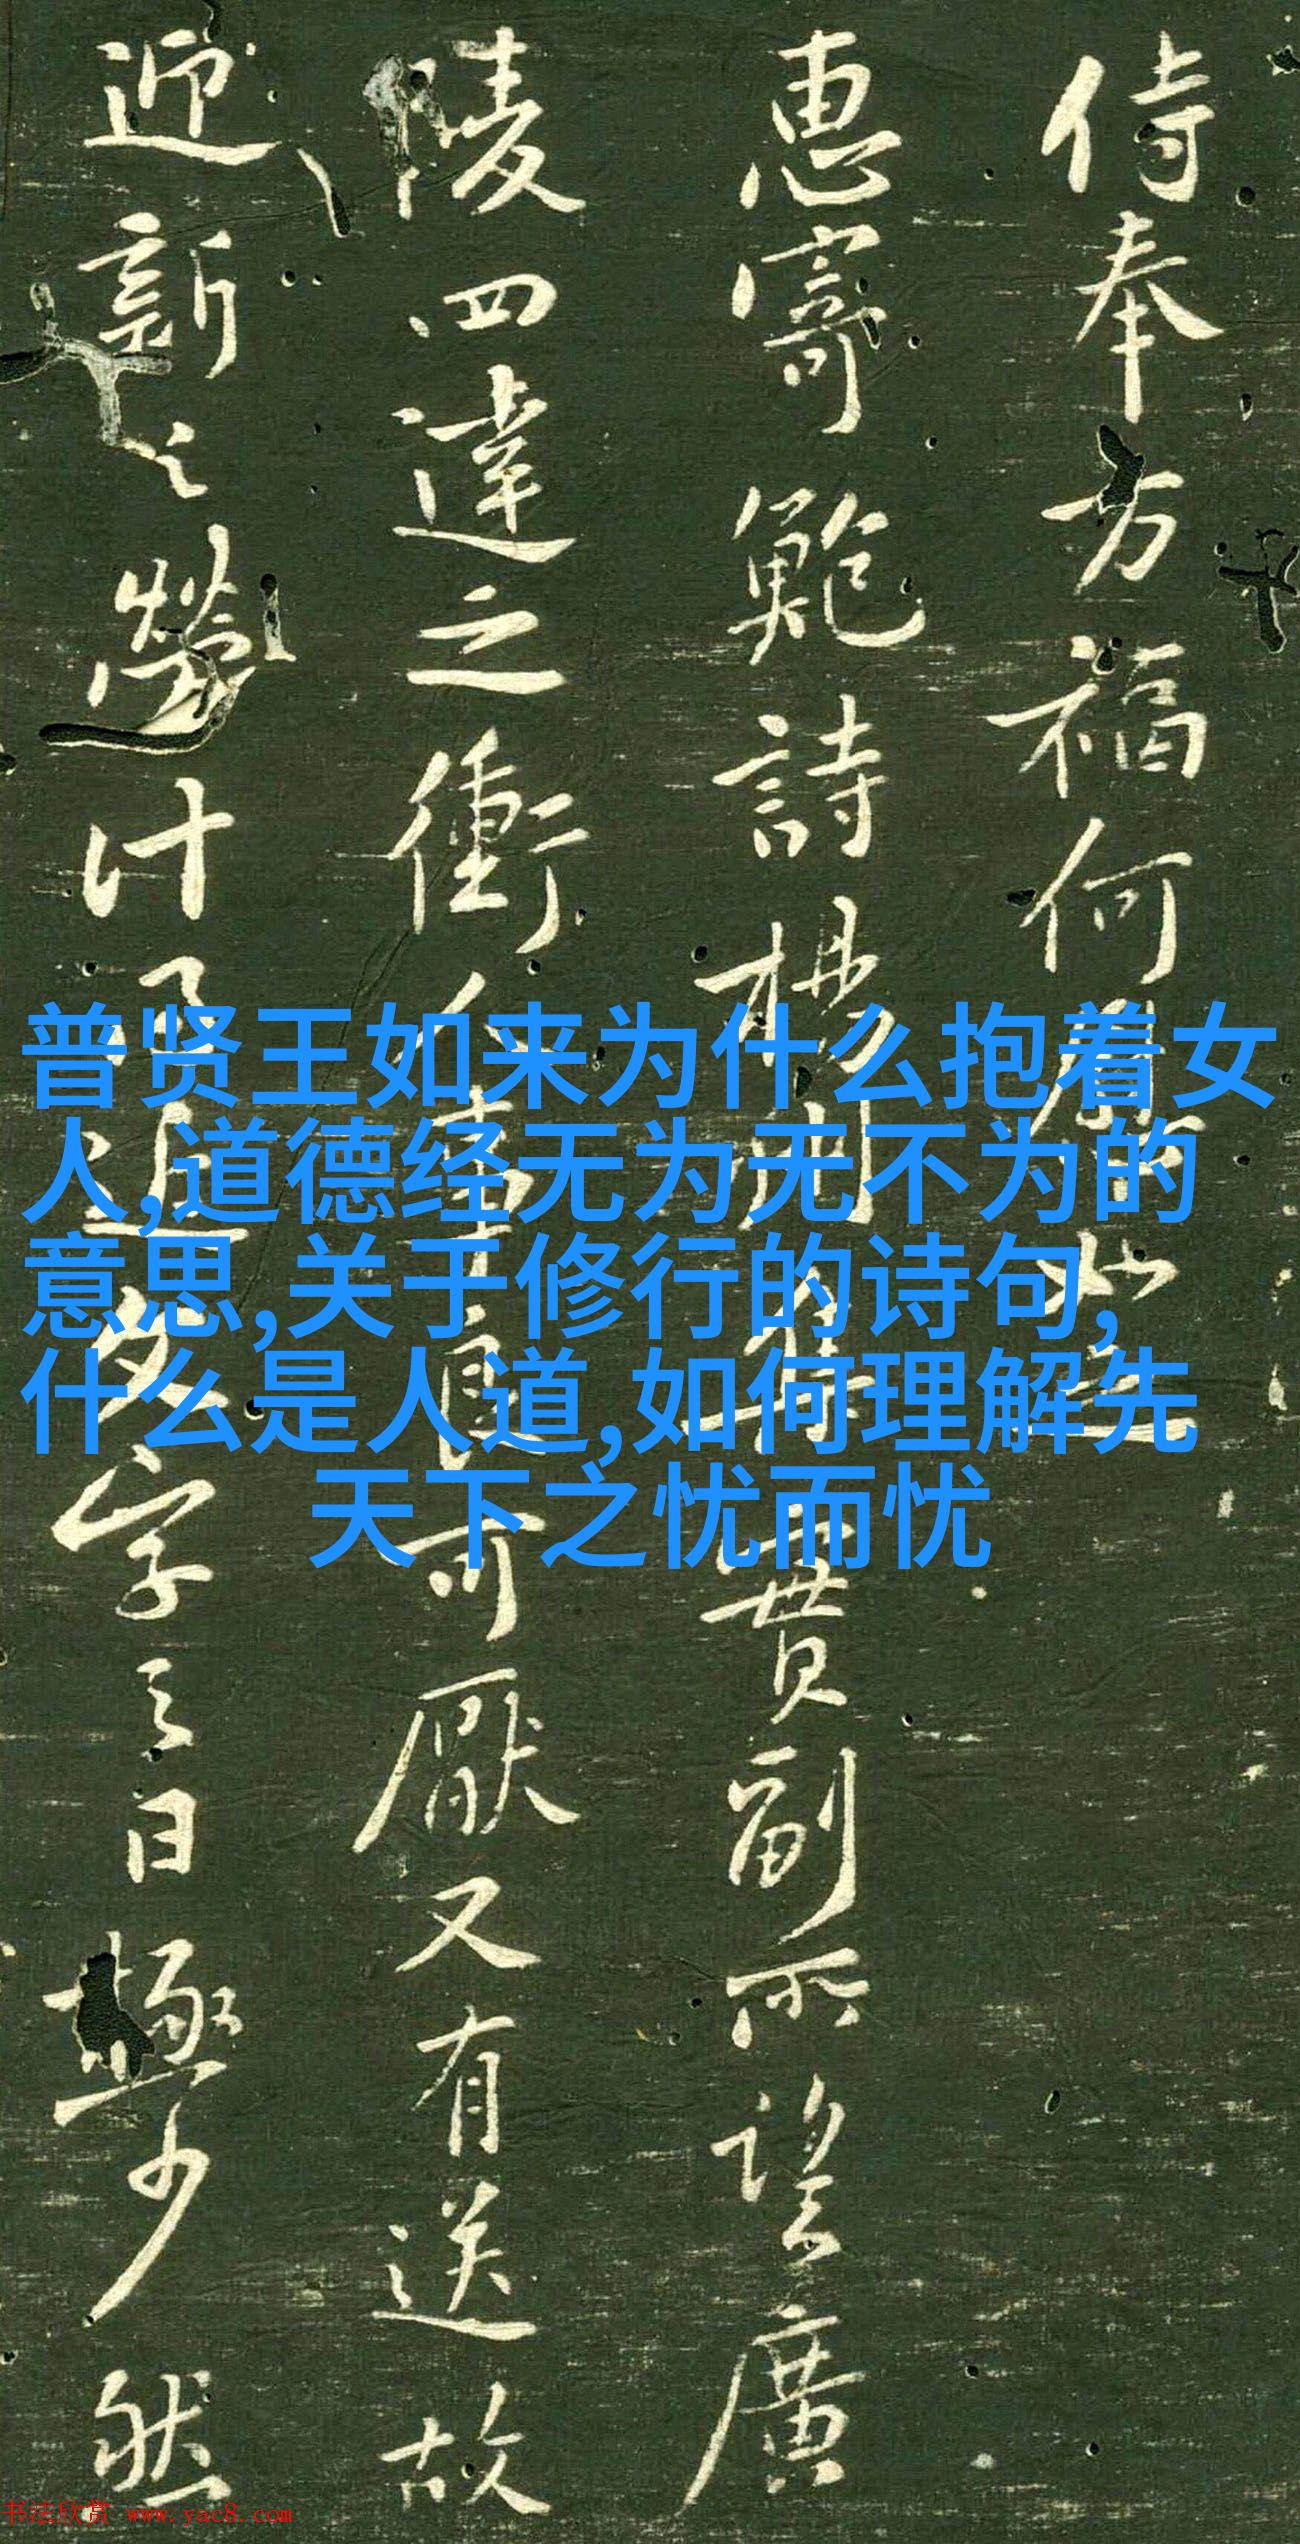 侍奉万福何
惠寄鲍詩楊州
貫副所望廣
陵四達之衝
可厭又有送故
迎新之勞计
字元日
極少然
普贤王如来为什么抱着女
人,道德经无为无不为的
意思,关于修行的诗句,
什么是人道,如何理解先
天下之忧而忧
书法欣赏 www.yac8.com